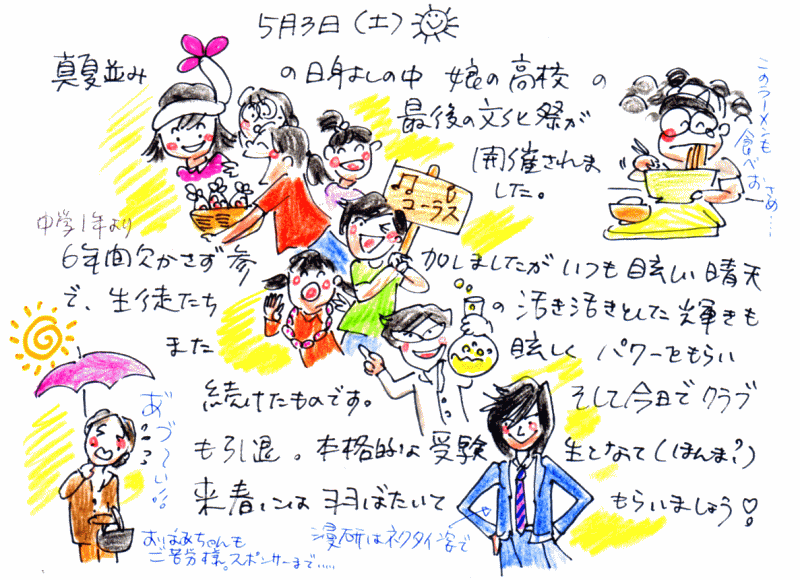 5月3日(土)
真夏並みの日射しの中 娘の高校の
最後の文化祭が
開催されま
した。
このラーメンも
食べおさめ…
♫ コーラス
中学1年より
6年間欠かさず参加しましたが いつも眩しい晴天
で、生徒たちの活き活きとした輝きも
また眩しく パワーをもらい
続けたものです。そして今日でクラブ
も引退。本格的な受験生となって(ほんま?)
来春には羽ばたいてもらいましょう♡
あづ〜い!!
おばあちゃんも
ご苦労様。スポンサーまで……
漫研はネクタイ姿で